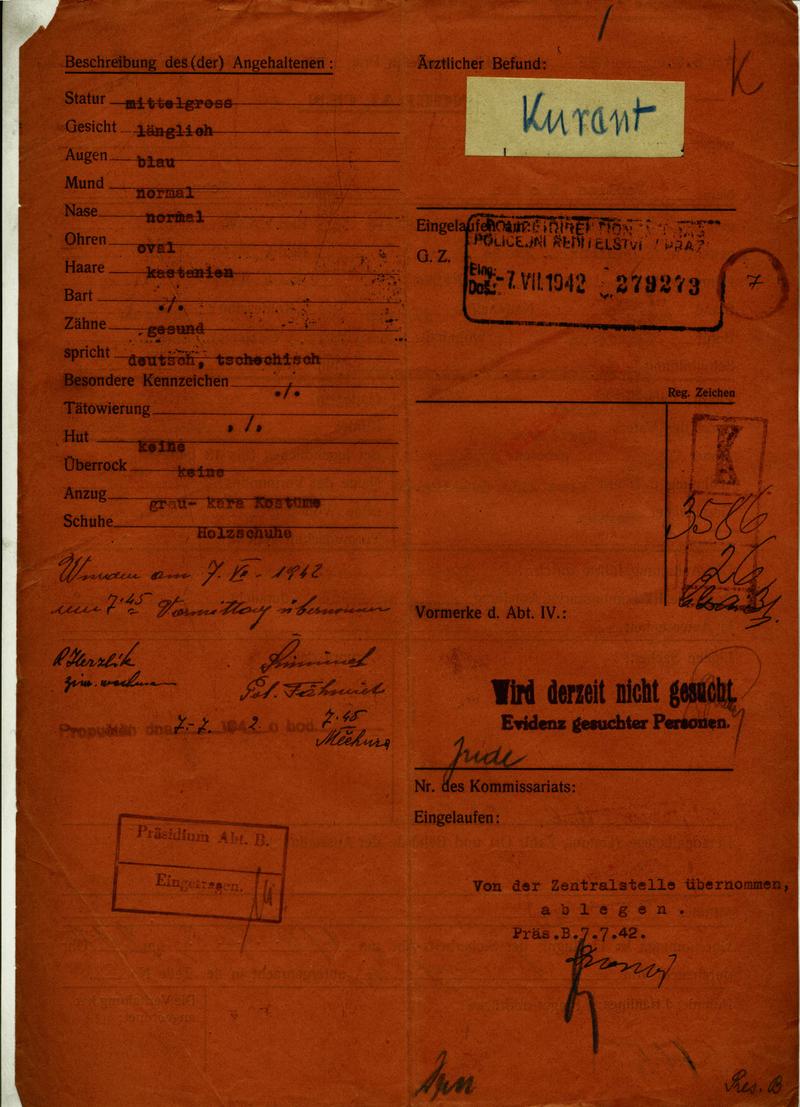 Beschreibung des (der) Angehaltenen:
Statur mittelgross
Gesicht länglich
Augen blau
Mund normal
Nase normal
Ohren oval
Haare kastanien
Bart ./.
Zähne gesund
spricht deutsch, tschechisch
Besondere Kennzeichen ./.
Tätowierung ./.
Hut keine
Überrock keine
Anzug grau- kara Kostüme
Schuhe Holzschuhe
Wurden am 7. VII. 1942
um 7.45 Vormittag übernommen
Propuštěn dne 7.-7. 1942 o hod. 7.45
Präsidium Abt. B.
Eingetragen.
Ärztlicher Befund:
K
Kurant
Eingelaufen am
POLIZEIDIREKTION IN PRAG
POLICEJNÍ ŘEDITELSTVÍ V PRAZE
G. Z.
Eing.
Doš.: -7. VII. 1942 279273
7
Reg. Zeichen
K
3586
26
Vormerke d. Abt. IV.:
Wird derzeit nicht gesucht.
Evidenz gesuchter Personen.
Jude
Nr. des Kommissariats:
Eingelaufen:
Von der Zentralstelle übernommen,
ablegen.
Präs.B.7.7.42.
Pres. B